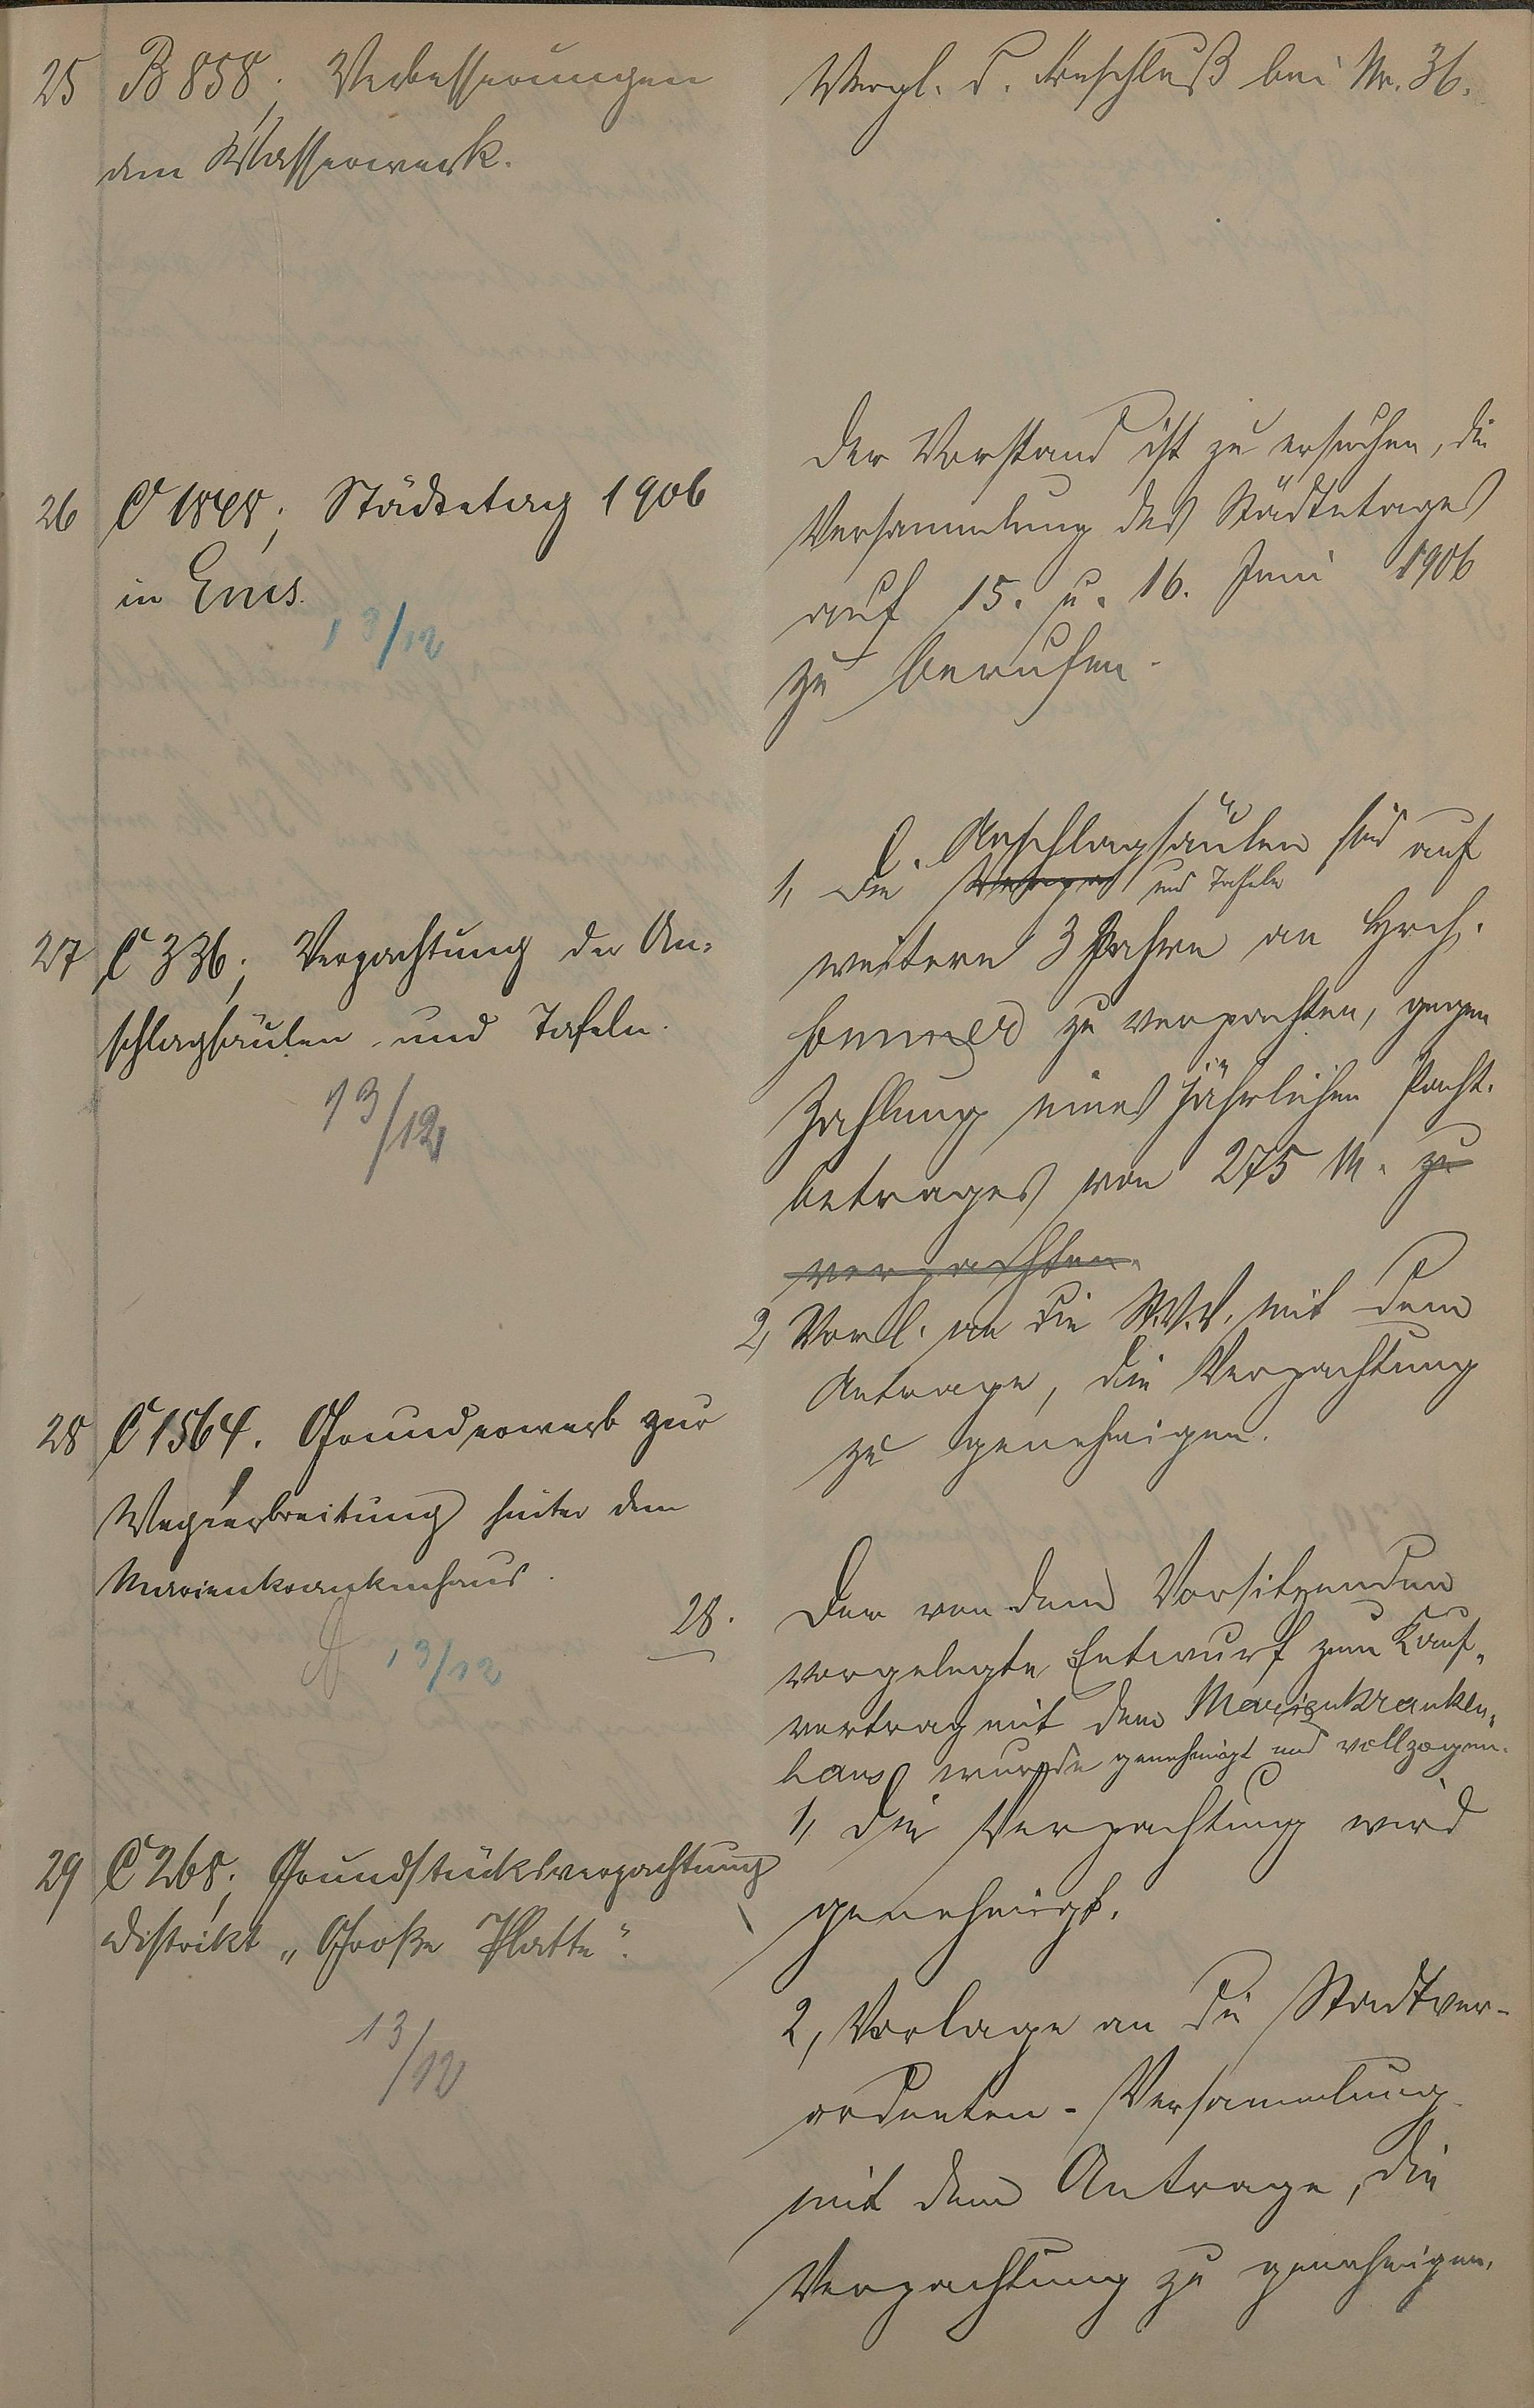 25 B 858; Verbesserungen
dem Wasserwerk.
Vergl. d. Beschluß bei Nr. 36.
26 C 1848; Städtetag 1906
in Ems.
13/12
Der Vorstand ist zu ersuchen, die
Versammlung des Städtetages
auf 15. u. 16. Juni 1906
zu berufen.
27 C 336; Verpachtung der An-
schlagsäulen und Tafeln.
13/12
Anschlagsäulen sind auf
1, Die und Tafeln
weitere 3 Jahre an Hrch.
Sommer zu verpachten, gegen
Zahlung eines jährlichen Pacht-
betrages von 275 M. zu
verpachten.
2, Vorl. an die St.V.V. mit dem
Antrage, die Verpachtung
zu genehmigen.
28 C 1564. Grunderwerb zur
Wegverbreitung hinter dem
Marienkrankenhaus.
13/12
28. Der von dem Vorsitzenden
vorgelegte Entwurf zum Kauf-
vertrag mit dem Marienkranken-
haus wurde genehmigt und vollzogen.
29 C 268; Grundstücksverpachtung
Distrikt „Große Platte".
13/12
1, Die Verpachtung wird
genehmigt.
2, Vorlage an die Stadtver-
ordneten-Versammlung
mit dem Antrage, die
Verpachtung zu genehmigen.